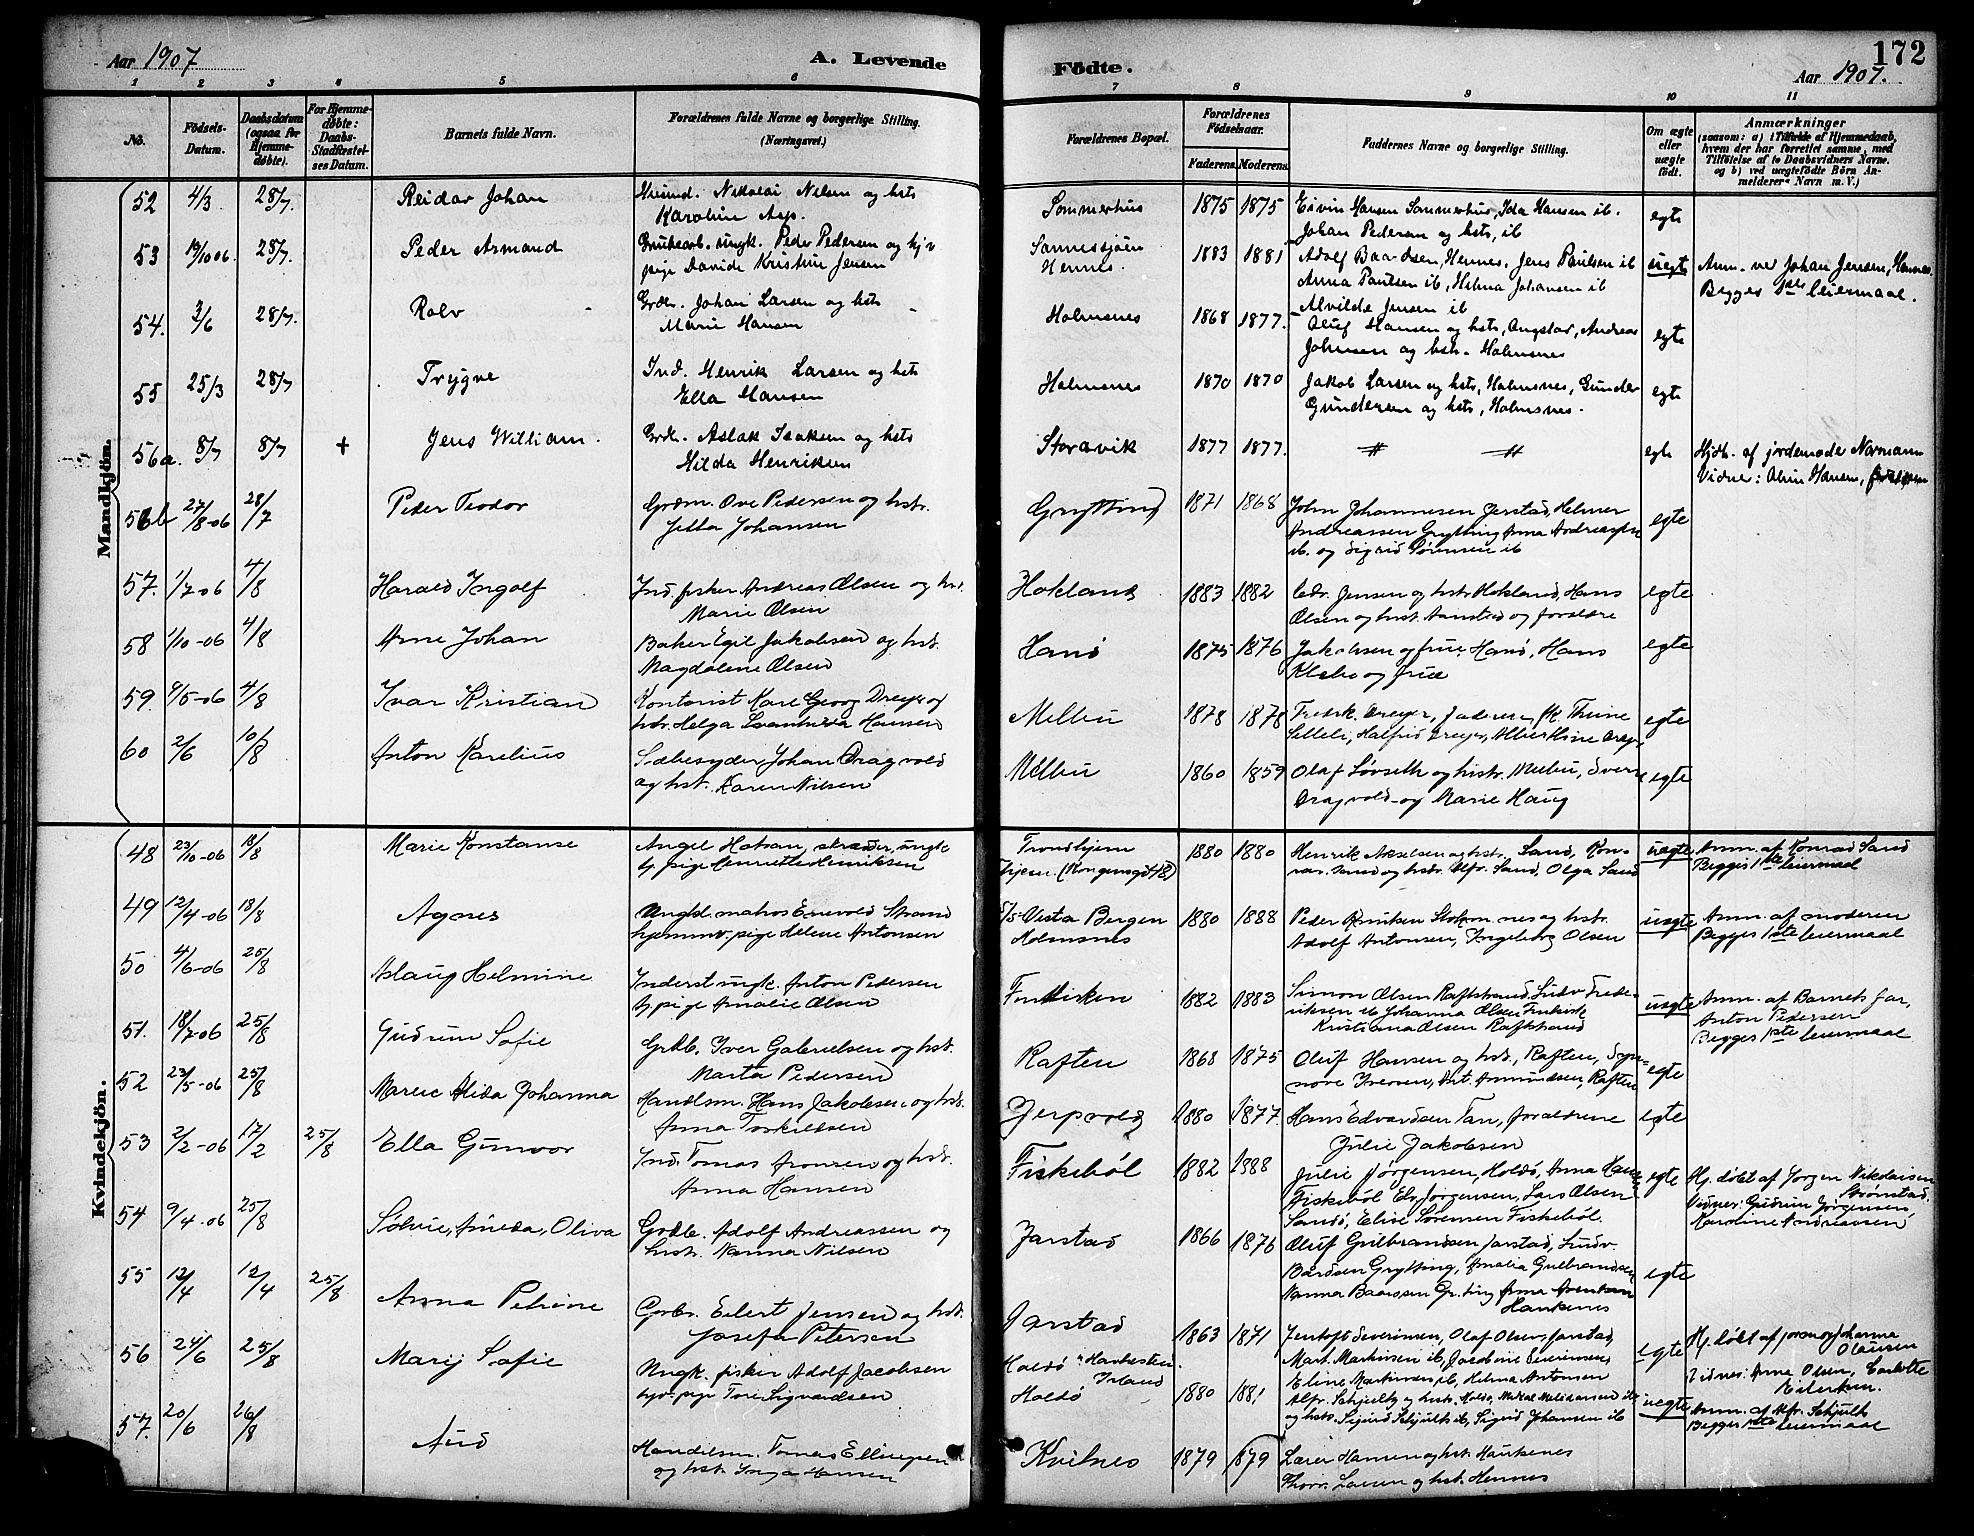 172
Aar 1907
A. Levende
Födte.
Aar 1907.
1 2 3 4 5 6 7 8 9 10 11
No.
Födsels-
Datum.
Daabsdatum
(ogsaa for
Hjemme-
döbte).
For Hjemme-
döbte:
Daabs-
Stadfæstel-
ses Datum.
Barnets fulde Navn.
Forældrenes fulde Navne og borgerlige Stilling.
(Næringsvei.)
Forældrenes Bopæl.
Forældrenes
Födselsaar.
Faderens.
Moderens.
Faddernes Navne og borgerlige Stilling.
Om ægte
eller
uægte
født.
Anmærkninger
(saasom: a) i Tilfælde af Hjemmedaab,
hvem der har forrettet samme, med
Tilföielse af to Daabsvidners Navne.
og b) ved uægtefödte Börn An-
melderens Navn m. V.)
Mandkjön.
52 4/3 28/7. Reidar Johan
Nikolai Nilsen og hst
Karoline Asp.
Sommerhus 1875 1875
Eivin Hansen Sommerhus, Ida Hansen ib.
Johan Pedersen og hst, ib
egte
53 19/10 06. 28/7. Peder Armand
ungk. Peder Pedersen og
pige Davida Kristine Jensen
Sannessjøen
Hennes.
1883 1881
Adolf Baardsen, Hennes, Jens Paulsen ib
Anna Paulsen ib, Helma Johansen ib
Alvilde Jensen ib
uegte
Anm. ved Johan Jensen, Hennes.
Begges 1ste leiermaal.
54. 3/6 28/7. Rolv
Grdbr. Johan Larsen og hst
Marie Hansen
Holmsnes 1868 1877.
Oluf Hansen og hst, Andreas
Johnsen og hst. Holmsnes
egte
55 25/3 28/7 Trygve
Ind. Henrik Larsen og hst
Ella Hansen
Holmsnes 1870 1870
Jakob Larsen og hst, Holmsnes, Gunder
Gundersen og hst, Holmsnes.
egte
56a. 8/7 8/7 + Jens William.
Grdb. Aslak Isaksen og hst
Hilda Henriksen
Storavik 1877 1877.
egte
Hjdb. af jordemoder Normann
Vidner: Hansen,
56b 27/8-06 28/7 Peder Teodor
Grdm. Ove Pedersen og hst.
Jetta Johansen
Grytting 1871 1868
John Johannesen Jerstad, Helmer
Andreassen Grytting Anna Andreassen
ib. og Sigrid Sørensen ib
egte
57. 1/7-06 4/8 Harald Ingolf
Ind. fisker Andreas Olsen og hst.
Marie Olsen
Hokland 1883 1882
Jensen og hst Hokland, Hans
Olsen og hst. og forældre
egte
58 1/10-06 4/8 Arne Johan
Baker Egil Jakobsen og hst.
Magdalene Olsen
Hanø 1875 1876
Jakobsen og frue Hanø, Hans
Klebo og frue
egte
59 9/5-06 4/8 Ivar Kristian
Kontorist Karl Georg Dreyer og
hst. Helga Hansen
Melbu 1878 1878
Fredrk. Dreyer,
egte
60 2/6 10/8 Anton Karelius
Sæbesyder Johan Dragvold
og hst. Karen Nilsen
Melbu 1860 1859
Olaf Løvseth og hustr. Melbu,
Dragvold og Marie Haug
egte
Kvindekjön.
48 23/10-06 18/8 Marie Konstanse
Angel skræder, ungk.
pige Henriette Henriksen
Trondhjem
1880 1880
Henrik Akselsen og hst. Sand, Kon-
rad Sand og hst. Alfr. Sand, Olga Sand
uegte
Anm. af Konrad Sand
Begges 1ste leiermaal
49 12/4-06 18/8 Agnes
Ungkl. matros Enevold Strand
hjemmv. pige Helene Antonsen
S/S Vesta Bergen
Holmsnes
1880 1888
Peder Knutsen og hst.
Adolf Antonsen, Ingeborg Olsen
uegte
Anm. af moderen
Begges 1ste leiermaal
50 4/6-06 25/8 Aslaug Helmine
Inderst ungk. Anton Pedersen
pige Amalie Olsen
1882 1883
Simon Olsen Raftstrand, Ludv. Frede-
riksen ib Johanna Olsen
Kristianna Olsen Raftstrand
uegte
Anm. af Barnets far,
Anton Pedersen
Begges 1ste leiermaal
51. 18/7-06 25/8 Gudrun Sofie
Grdb. Iver Gabrielsen og hst.
Marta Pedersen
Raften 1868 1875
Oluf Hansen og hst, Raften, Syn-
nove Iversen, Ant. Amundsen, Raften
egte
52 23/5-06 25/8 Maren Alida Johanna
Handlsm. Hans Jakobsen og hst.
Anna Torkildsen
Jerpvold 1880 1877.
Hans Edvardsen Tan, forældrene
Julie Jakobsen
egte
53 2/2-06 17/2 25/8 Ella Gunvor
Ind. Tomas Aronsen og hst.
Anna Hansen
Fiskebøl 1882 1888
Julie Jørgensen, Holdø, Anna Hansen
Fiskebøl Jørgensen, Lars Olsen
Sandø, Elise Sørensen Fiskebøl.
egte
Hj. døbt af Jørgen Nikolaisen
Strønstad,
Vidner: Gudrun Jørgensen,
Karoline Andreassen
54 9/4-06 25/8 Solvie, Ameda, Oliva
Grdb. Adolf Andreassen og
hust. Nanna Nilsen
Jarstad 1866 1876
Oluf Gulbrandsen Jarstad, Ludv.
Baardsen Grytting, Amalia Gulbrandsen
Nanna Baardsen Grytting Anna
Haukenes
egte
55 12/4 12/4 25/8 Anna Petrine
Grdbr. Eilert Jensen og hst.
Josefa Petersen
Jarstad 1863 1871
Jentoft Severinsen, Olaf Olsen, Jarstad,
Mart. Martinsen ib, Jacobine Severinsen,
Eline Martinsen ib, Helma Antonsen
egte
Hj. døbt af jordmor Johanna
Olaussen
Vidner: Anna Olsen, Carlotte
Eilertsen.
56 24/6 25/8 Marij Sofie
Ungk. fisker Adolf Jacobsen
pige Tora Sigvardsen
Holdø
Holdø
1880 1881
Alfr. Schjelb og hst. Holdø,
og hst. Sigurd Schjelb ib, Sigrid Johansen ib
uegte
Anm. af Alfr. Schjelb
Begges 1ste leiermaal
57. 20/6 26/8 Aud
Handelsm. Tomas Ellingsen
og hst. Inga Hansen
Kvitnes 1879 1879
Lærer Hansen og hst. Haukenes
Thorv. Larsen og hst. Hennes